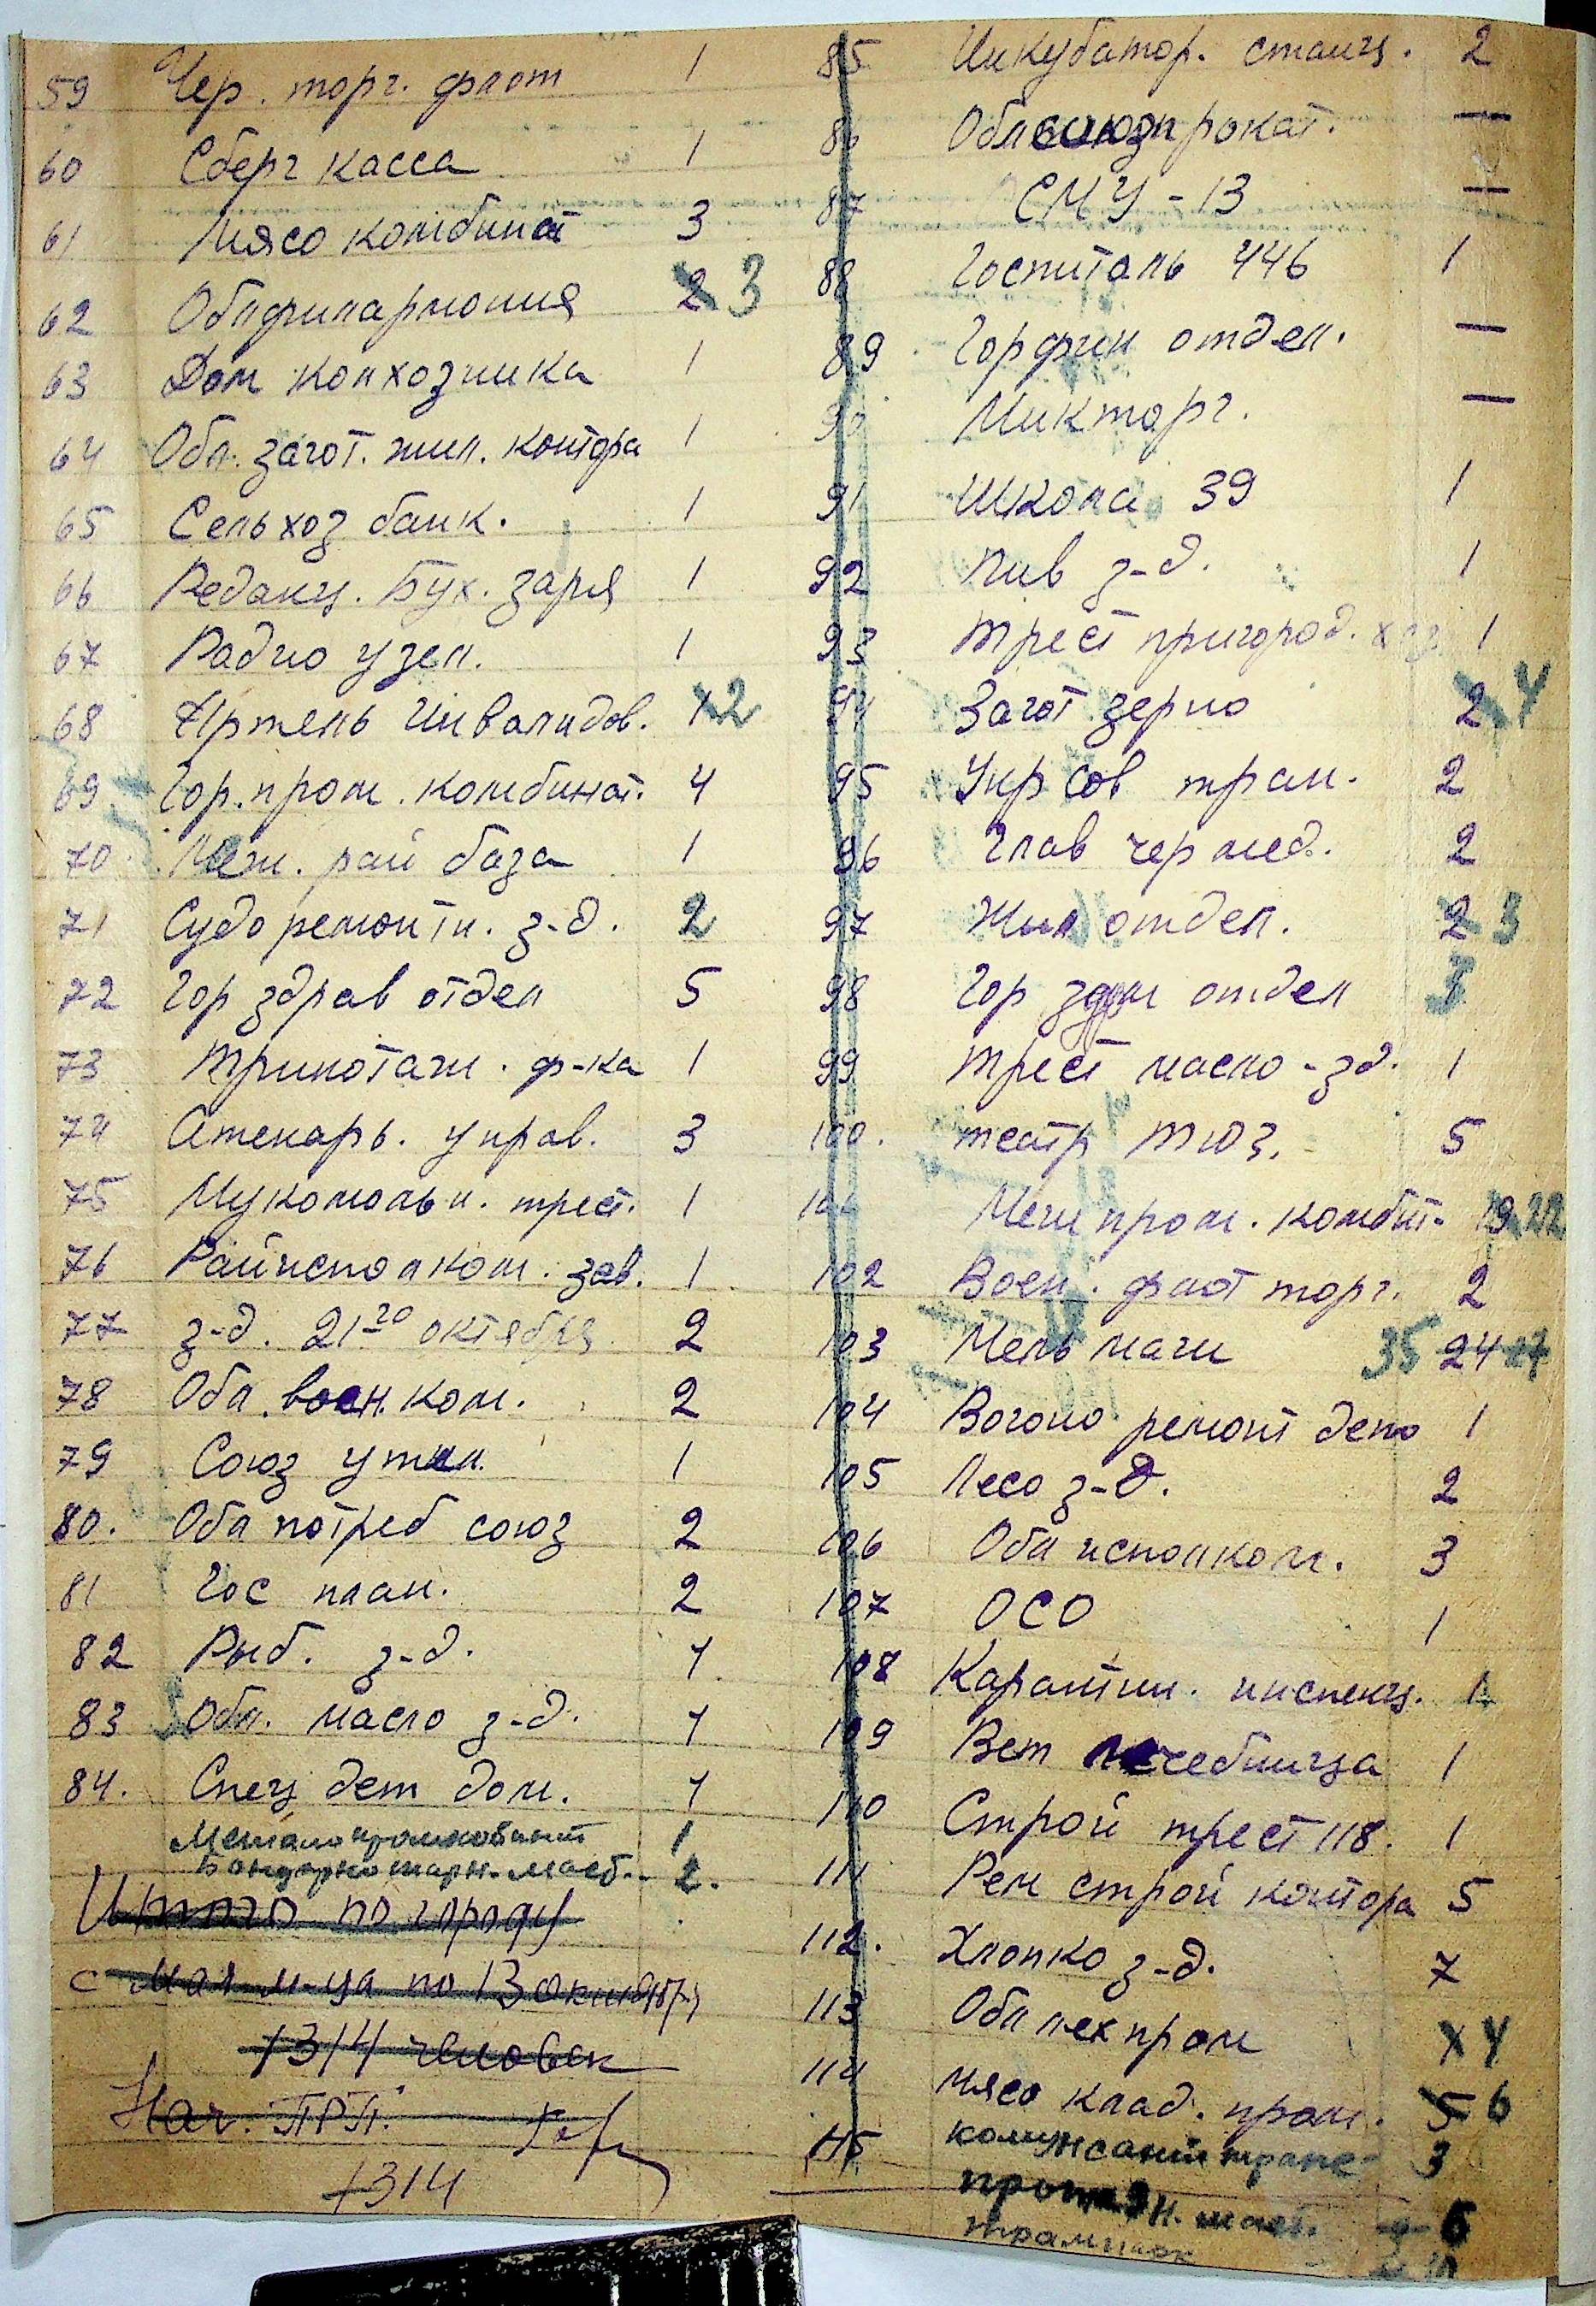 59 Чер. торг. флот 1
60 Сберг касса 1
61 Мясо комбинат 3
62 Облфилармония 2 3
63 Дом колхозника 1
64 Обл. загот. жил. контора 1
65 Сельхоз банк. 1
66 Редакц. Бух. заря 1
67 Радио узел. 1
68 Артель Инвалидов. 1 2
69 Гор. пром. комбинат. 4
70 Меж. рай база 1
71 Судоремонтн. з-д. 2
72 Гор здрав отдел 5
73 Трикотаж. ф-ка 1
74 Аптекарь. управ. 3
75 Мукомольн. трест. 1
76 Райисполком. зав. 1
77 з-д. 21го октября 2
78 Обл. воен. ком. 2
79 Союз утил. 1
80. Обл потреб союз 2
81 Гос план. 2
82 Рыб. з-д. 1
83 Обл. масло з-д. 1
84. Спец дет дом. 1
Металопромкомбинат 1
Бондарно тарн. маст. 2.
Итого по городу
с мая м-ца по 13 октября
1314 человек
Нач. ПРП.
1314
85 Инкубатор. станц. 2
86 Облсоюзпрокат. —
87 СМУ-13 —
88 Госпиталь 446 1
89 Горфин отдел. —
90 Микторг. —
91 Школа 39 1
92 Пив з-д. 1
93 Трест пригород. хоз 1
94 Загот зерно 2 4
95 Укр сов тран. 2
96 Глав чермед. 2
97 Жил отдел. 2 3
98 Гор отдел 3
99 Трест масло-зд. 1
100. театр ТЮЗ. 5
101 Меж пром. комбит. 19 22
102 Воен. флот торг. 2
103 Мель маш 35 24 27
104 Вагоно ремонт депо 1
105 Лесо з-д. 2
106 Обл исполком. 3
107 ОСО 1
108 Карантин. инспекц. 1
109 Вет лечебница 1
110 Строй трест 118. 1
111 Рем строй контора 5
112. Хлопко з-д. 7
113 Обл легпром X 4
114 Мясо клад. пром. 5 6
115 3
маст. 6